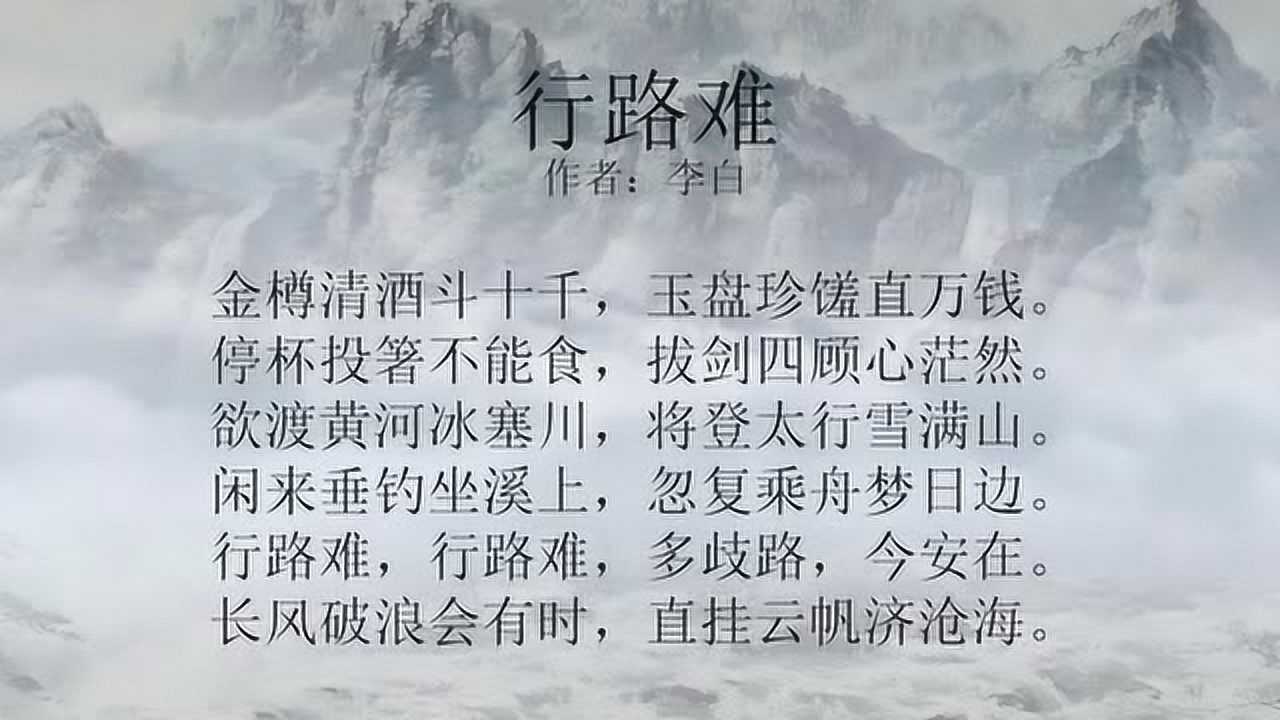 行路难
作者：李白
金樽清酒斗十千，玉盘珍馐直万钱。
停杯投箸不能食，拔剑四顾心茫然。
欲渡黄河冰塞川，将登太行雪满山。
闲来垂钓坐溪上，忽复乘舟梦日边。
行路难，行路难，多歧路，今安在。
长风破浪会有时，直挂云帆济沧海。